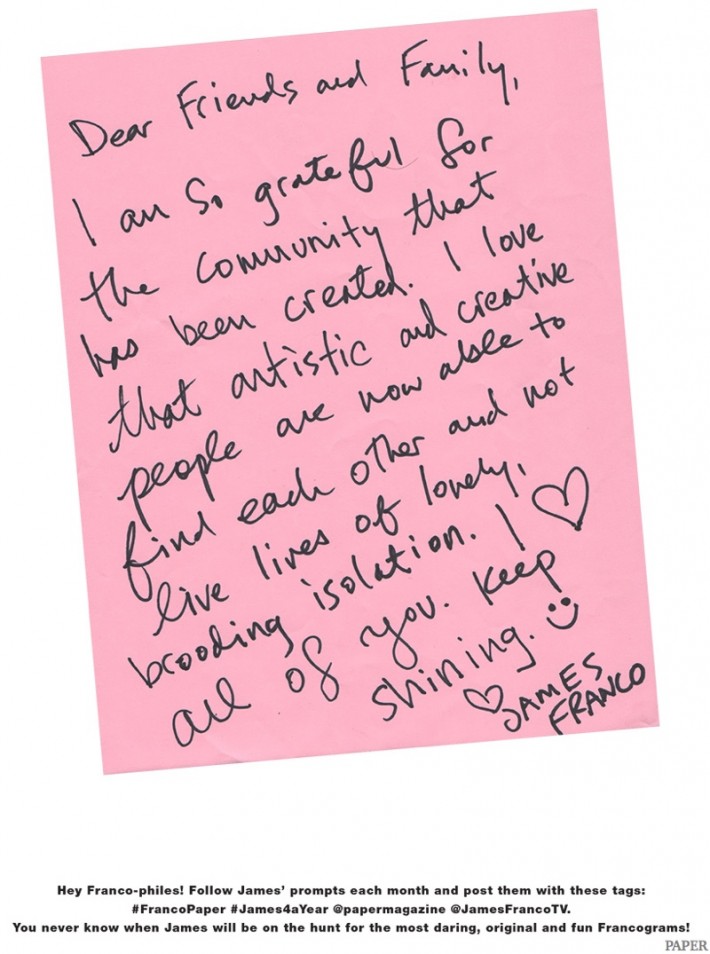 Dear Friends and Family,
I am so grateful for
the community that
has been created. I love
that artistic and creative
people are now able to
find each other and not
live lives of lonely,
brooding isolation. I ♡
all of you. Keep
shining. :)
♡ JAMES
FRANCO
Hey Franco-philes! Follow James’ prompts each month and post them with these tags:
#FrancoPaper #James4aYear @papermagazine @JamesFrancoTV.
You never know when James will be on the hunt for the most daring, original and fun Francograms!
PAPER